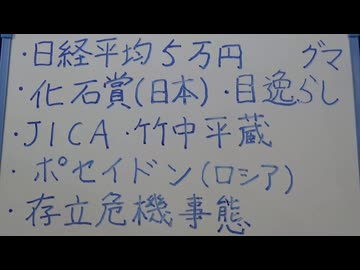 ・日経平均５万円　グマ
・化石賞(日本)・目逸らし
・JICA・竹中平蔵
・ポセイドン(ロシア)
・存立危機事態